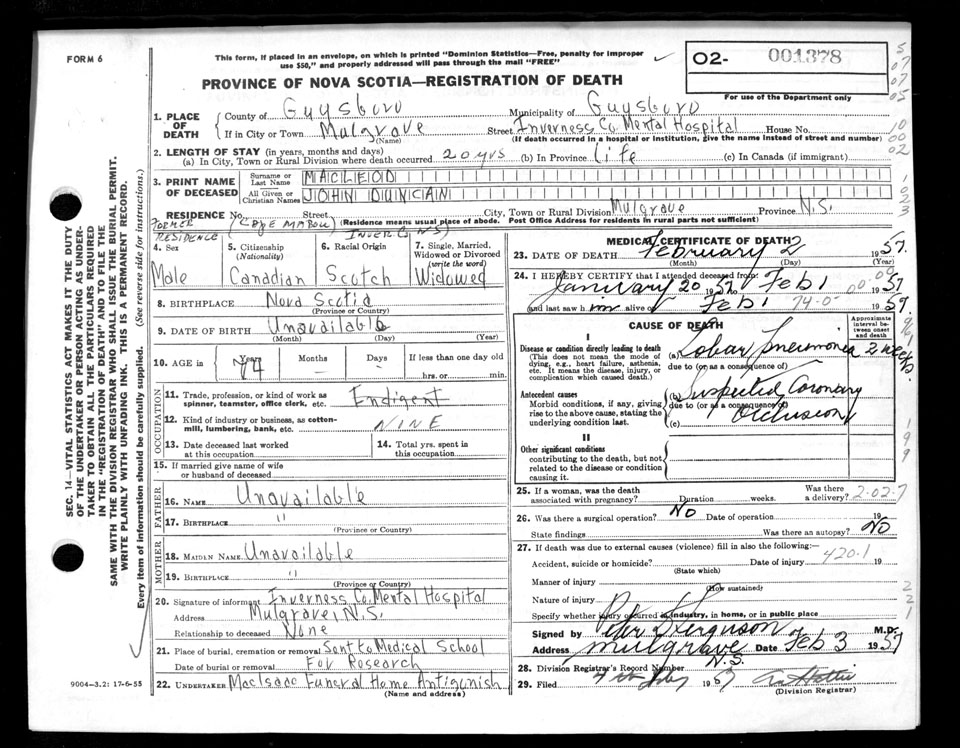 FORM 6
This form, if placed in an envelope, on which is printed "Dominion Statistics—Free, penalty for improper
use $50," and properly addressed will pass through the mail "FREE"
02- 001378
For use of the Department only
PROVINCE OF NOVA SCOTIA—REGISTRATION OF DEATH
1. PLACE OF DEATH
County of Guysboro Municipality of Guysboro
If in City or Town Mulgrave Street Inverness Co. Mental Hospital House No.
(Name) (If death occurred in a hospital or institution, give the name instead of street and number)
2. LENGTH OF STAY (in years, months and days)
(a) In City, Town or Rural Division where death occurred 20 yrs (b) In Province Life (c) In Canada (if immigrant)
3. PRINT NAME OF DECEASED
Surname or Last Name MACLEOD
All Given or Christian Names JOHN DUNCAN
RESIDENCE No. Street City, Town or Rural Division Mulgrave Province N.S.
(Residence means usual place of abode. Post Office Address for residents in rural parts not sufficient)
FORMER RESIDENCE (CAPE MABOU INVER. CO NS)
4. Sex Male
5. Citizenship (Nationality) Canadian
6. Racial Origin Scotch
7. Single, Married, Widowed or Divorced (write the word) Widowed
8. BIRTHPLACE Nova Scotia
(Province or Country)
9. DATE OF BIRTH Unavailable
(Month) (Day) (Year)
10. AGE in Years 74 Months — Days — If less than one day old
hrs. or min.
OCCUPATION
11. Trade, profession, or kind of work as spinner, teamster, office clerk, etc. Endigent
12. Kind of industry or business, as cotton-mill, lumbering, bank, etc. NINE
13. Date deceased last worked at this occupation
14. Total yrs. spent in this occupation
15. If married give name of wife or husband of deceased
FATHER
16. NAME Unavailable
17. BIRTHPLACE "
(Province or Country)
MOTHER
18. MAIDEN NAME Unavailable
19. BIRTHPLACE "
(Province or Country)
20. Signature of informant Inverness Co. Mental Hospital
Address Mulgrave, N.S.
Relationship to deceased None
21. Place of burial, cremation or removal Sent to Medical School
Date of burial or removal For Research
22. UNDERTAKER MacIsaac Funeral Home Antigonish
(Name and address)
9004-3.2: 17-6-55
MEDICAL CERTIFICATE OF DEATH
23. DATE OF DEATH February 2 1957.
(Month) (Day) (Year)
24. I HEREBY CERTIFY that I attended deceased from:
January 20 1957 Feb 1 1957
and last saw him alive on Feb 1 1957.
74.0
CAUSE OF DEATH
Approximate interval between onset and death
Disease or condition directly leading to death
(This does not mean the mode of dying, e.g., heart failure, asthenia, etc. It means the disease, injury, or complication which caused death.)
(a) Lobar Pneumonia 2 weeks.
due to (or as a consequence of)
Antecedent causes
Morbid conditions, if any, giving rise to the above cause, stating the underlying condition last.
(b) Suspected Coronary
due to (or as a consequence of)
(c) Occlusion
II
Other significant conditions
contributing to the death, but not related to the disease or condition causing it.
25. If a woman, was the death associated with pregnancy? Duration weeks. Was there a delivery?
2-02-7
26. Was there a surgical operation? No Date of operation 19
State findings Was there an autopsy? No
27. If death was due to external causes (violence) fill in also the following:—
Accident, suicide or homicide? Date of injury 19
420.1
(State which)
Manner of injury
(How sustained)
Nature of injury
Specify whether injury occurred in industry, in home, or in public place
Signed by Ferguson M.D.
Address Mulgrave N.S. Date Feb 3 1957
28. Division Registrar's Record Number
29. Filed 1957
(Division Registrar)
SEC. 14—VITAL STATISTICS ACT MAKES IT THE DUTY
OF THE UNDERTAKER OR PERSON ACTING AS UNDER-
TAKER TO OBTAIN ALL THE PARTICULARS REQUIRED
IN THE "REGISTRATION OF DEATH" AND TO FILE THE
SAME WITH THE DIVISION REGISTRAR WHO SHALL ISSUE THE BURIAL PERMIT.
WRITE PLAINLY WITH UNFADING INK. THIS IS A PERMANENT RECORD.
Every item of information should be carefully supplied. (See reverse side for instructions.)